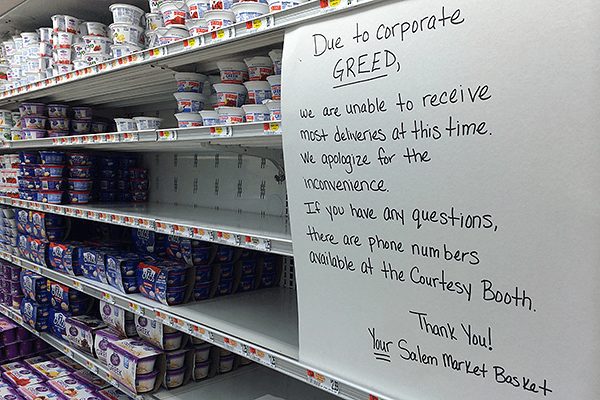 Due to corporate
GREED,
we are unable to receive
most deliveries at this time.
We apologize for the
inconvenience.
If you have any questions,
there are phone numbers
available at the Courtesy Booth.
Thank You!
Your Salem Market Basket